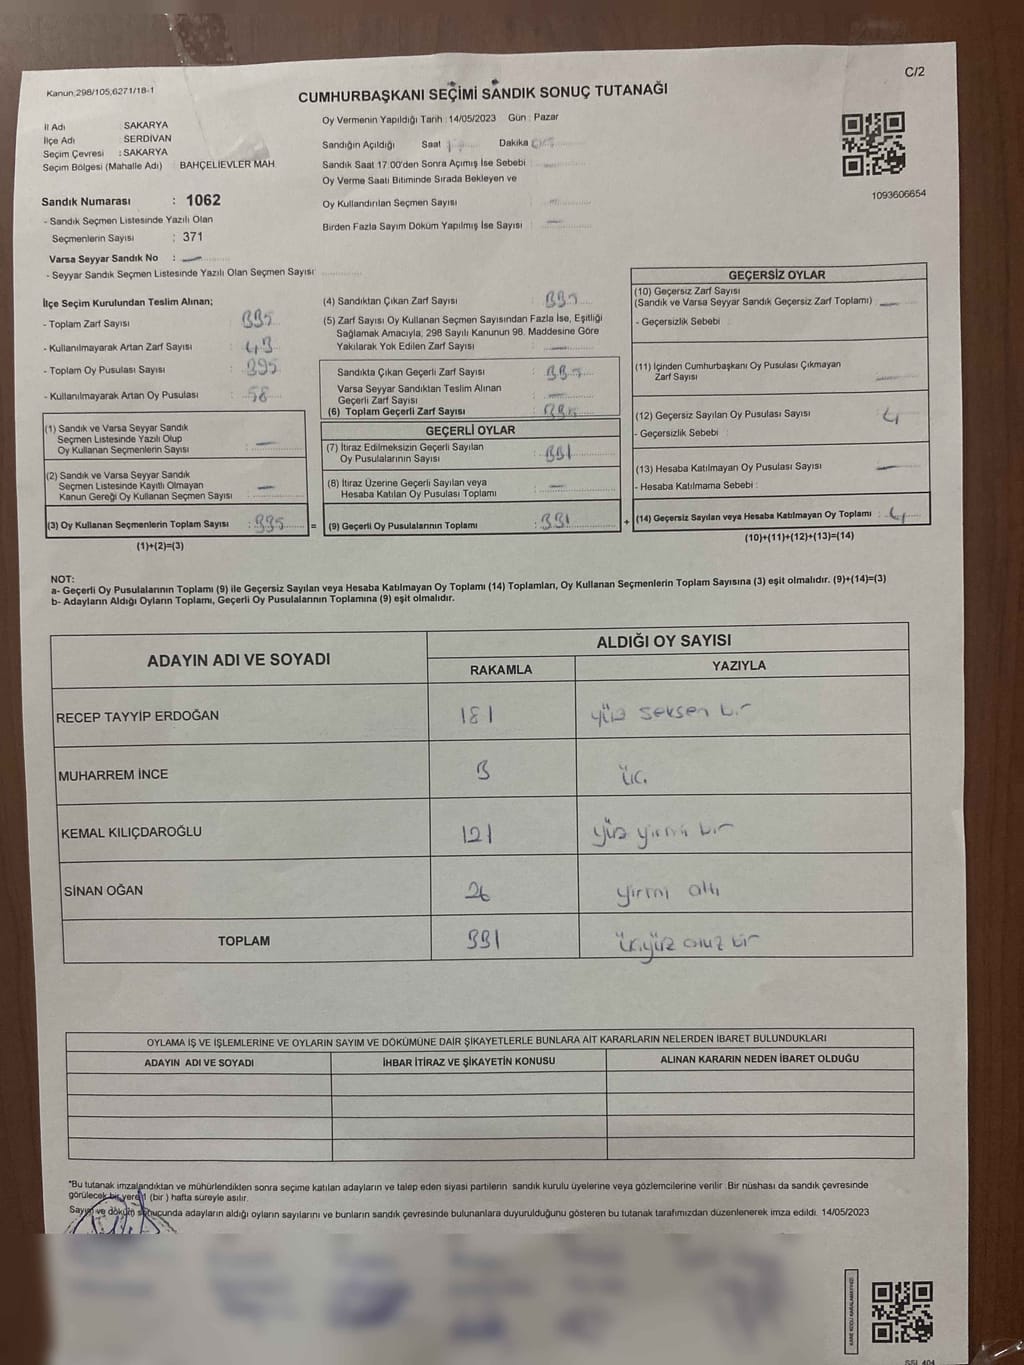 C/2
Kanun:298/105,6271/18-1
CUMHURBAŞKANI SEÇİMİ SANDIK SONUÇ TUTANAĞI
İl Adı : SAKARYA
İlçe Adı : SERDİVAN
Seçim Çevresi : SAKARYA
Seçim Bölgesi (Mahalle Adı) : BAHÇELİEVLER MAH
Oy Vermenin Yapıldığı Tarih : 14/05/2023 Gün : Pazar
Sandığın Açıldığı Saat Dakika
Sandık Saat 17:00'den Sonra Açımış İse Sebebi :
Oy Verme Saati Bitiminde Sırada Bekleyen ve
Oy Kullandırılan Seçmen Sayısı
Birden Fazla Sayım Döküm Yapılmış İse Sayısı :
1093606654
Sandık Numarası : 1062
- Sandık Seçmen Listesinde Yazılı Olan
Seçmenlerin Sayısı : 371
Varsa Seyyar Sandık No : —
- Seyyar Sandık Seçmen Listesinde Yazılı Olan Seçmen Sayısı :
İlçe Seçim Kurulundan Teslim Alınan;
- Toplam Zarf Sayısı : 395
- Kullanılmayarak Artan Zarf Sayısı : 43
- Toplam Oy Pusulası Sayısı : 395
- Kullanılmayarak Artan Oy Pusulası : 58
(1) Sandık ve Varsa Seyyar Sandık
Seçmen Listesinde Yazılı Olup
Oy Kullanan Seçmenlerin Sayısı : —
(2) Sandık ve Varsa Seyyar Sandık
Seçmen Listesinde Kayıtlı Olmayan
Kanun Gereği Oy Kullanan Seçmen Sayısı : —
(3) Oy Kullanan Seçmenlerin Toplam Sayısı : 335 =
(1)+(2)=(3)
(4) Sandıktan Çıkan Zarf Sayısı : 335
(5) Zarf Sayısı Oy Kullanan Seçmen Sayısından Fazla İse, Eşitliği
Sağlamak Amacıyla, 298 Sayılı Kanunun 98. Maddesine Göre
Yakılarak Yok Edilen Zarf Sayısı : —
Sandıkta Çıkan Geçerli Zarf Sayısı : 335
Varsa Seyyar Sandıktan Teslim Alınan
Geçerli Zarf Sayısı : —
(6) Toplam Geçerli Zarf Sayısı : 335
GEÇERLİ OYLAR
(7) İtiraz Edilmeksizin Geçerli Sayılan
Oy Pusulalarının Sayısı : 331
(8) İtiraz Üzerine Geçerli Sayılan veya
Hesaba Katılan Oy Pusulası Toplamı : —
(9) Geçerli Oy Pusulalarının Toplamı : 331 +
GEÇERSİZ OYLAR
(10) Geçersiz Zarf Sayısı
(Sandık ve Varsa Seyyar Sandık Geçersiz Zarf Toplamı) : —
- Geçersizlik Sebebi :
(11) İçinden Cumhurbaşkanı Oy Pusulası Çıkmayan
Zarf Sayısı : —
(12) Geçersiz Sayılan Oy Pusulası Sayısı : 4
- Geçersizlik Sebebi :
(13) Hesaba Katılmayan Oy Pusulası Sayısı : —
- Hesaba Katılmama Sebebi :
(14) Geçersiz Sayılan veya Hesaba Katılmayan Oy Toplamı : 4
(10)+(11)+(12)+(13)=(14)
NOT:
a- Geçerli Oy Pusulalarının Toplamı (9) ile Geçersiz Sayılan veya Hesaba Katılmayan Oy Toplamı (14) Toplamları, Oy Kullanan Seçmenlerin Toplam Sayısına (3) eşit olmalıdır. (9)+(14)=(3)
b- Adayların Aldığı Oyların Toplamı, Geçerli Oy Pusulalarının Toplamına (9) eşit olmalıdır.
ADAYIN ADI VE SOYADI ALDIĞI OY SAYISI
RAKAMLA YAZIYLA
RECEP TAYYİP ERDOĞAN 181 yüz seksen bir
MUHARREM İNCE 3 üç
KEMAL KILIÇDAROĞLU 121 yüz yirmi bir
SİNAN OĞAN 26 yirmi altı
TOPLAM 331 üçyüz otuz bir
OYLAMA İŞ VE İŞLEMLERİNE VE OYLARIN SAYIM VE DÖKÜMÜNE DAİR ŞİKAYETLERLE BUNLARA AİT KARARLARIN NELERDEN İBARET BULUNDUKLARI
ADAYIN ADI VE SOYADI İHBAR İTİRAZ VE ŞİKAYETİN KONUSU ALINAN KARARIN NEDEN İBARET OLDUĞU
*Bu tutanak imzalandıktan ve mühürlendikten sonra seçime katılan adayların ve talep eden siyasi partilerin sandık kurulu üyelerine veya gözlemcilerine verilir. Bir nüshası da sandık çevresinde
görülecek bir yere 1 (bir ) hafta süreyle asılır.
Sayım ve döküm sonucunda adayların aldığı oyların sayılarını ve bunların sandık çevresinde bulunanlara duyurulduğunu gösteren bu tutanak tarafımızdan düzenlenerek imza edildi. 14/05/2023